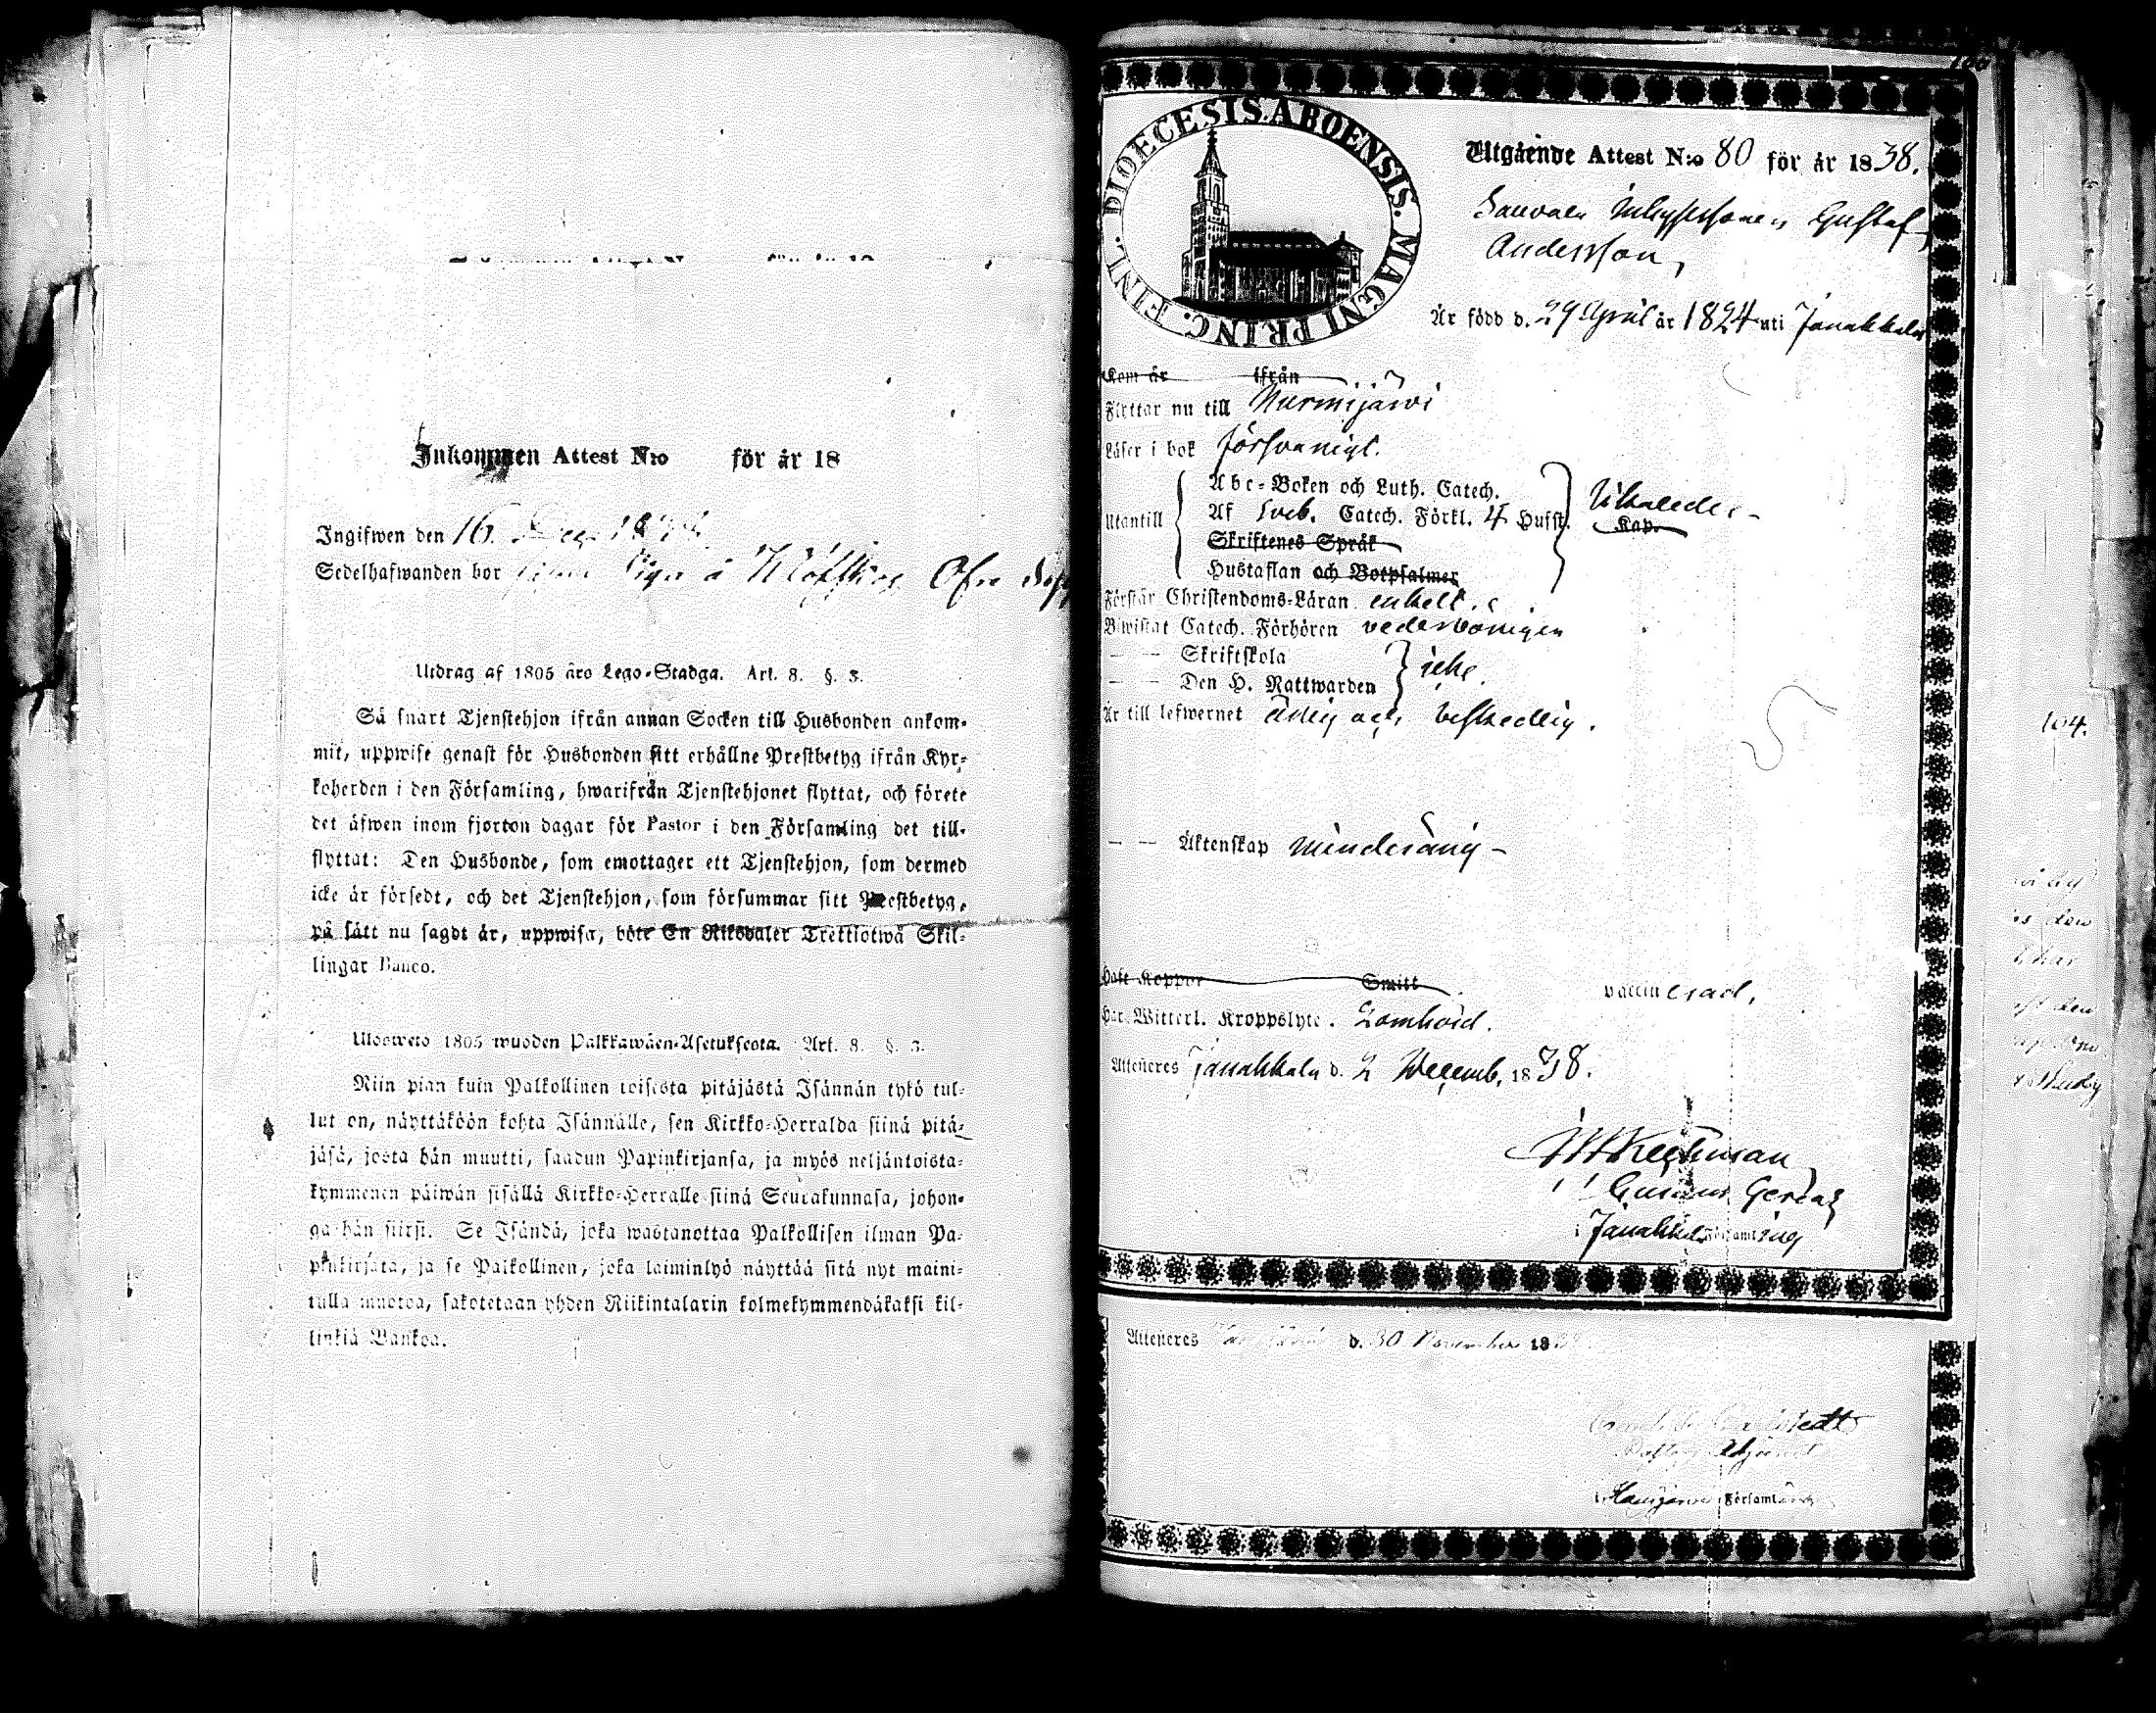 Inkommen Attest N:o för år 18
Ingifwen den 16
Sedelhafwanden bor
Utdrag af 1805 åro Lego-Stadga. Art. 8. §. 3.
Så snart Tjenstehjon ifrån annan Socken till Husbonden ankom-
mit, uppwise genast för Husbonden sitt erhållne Prestbetyg ifrån Kyr-
koherden i den Församling, hwarifrån Tjenstehjonet flyttat, och förete
det äfwen inom fjorton dagar för Pastor i den Församling det till-
flyttat: Den Husbonde, som emottager ett Tjenstehjon, som dermed
icke är försedt, och det Tjenstehjon, som försummar sitt Prestbetyg,
på sätt nu sagdt är, uppwisa, böte En Riksdaler Trettiotwå Skil-
lingar Banco.
Ulosweto 1805 wuoden Palkkawäen-Asetuksesta. Art. 8. §. 3.
Niin pian kuin Palkollinen toisesta pitäjästä Isännän tykö tul-
lut on, näyttäköön kohta Isännälle, sen Kirkko-Herralda siinä pitä-
jäsä, josta hän muutti, saadun Papinkirjansa, ja myös neljäntoista-
kymmenen päiwän sisällä Kirkko-Herralle siinä Seurakunnasa, johon-
ga hän siirsi. Se Isändä, joka wastanottaa Palkollisen ilman Pa-
pinkirjata, ja se Palkollinen, joka laiminlyö näyttää sitä nyt maini-
tulla muotoa, sakotetaan yhden Riikintalarin kolmekymmendäkaksi kil-
linkiä Bankoa.
DIOECESIS. ABOENSIS. MAGNI PRINC. FINL.
Utgående Attest N:o 80 för år 1838.
Gustaf
Andersson,
Är född d. 29 April år 1824 uti Janakkala
Kom år ifrån
Flyttar nu till Nurmijärvi
Läser i bok försvarligt.
Utantill
Abc-Boken och Luth. Catech.
Af Sveb. Catech. Förkl. 4 Hufst.
Kap.
Skriftenes Språk
Hustaflan och Botpsalmer
Förstår Christendoms-Läran enkelt.
Biwistat Catech. Förhören vederbörligen
— — Skriftskola
— — Den H. Nattwarden icke.
Är till lefwernet ärlig och beskedlig.
— — Äktenskap minderårig –
Haft Koppor Smitt vaccinerad.
Har Witterl. Kroppslyte. Lomhörd.
Attesteres Janakkala d. 2 Decemb. 1838.
i Janakkala Församling
104.
Attesteres d. 30 November 18
Adjunct
i Församling